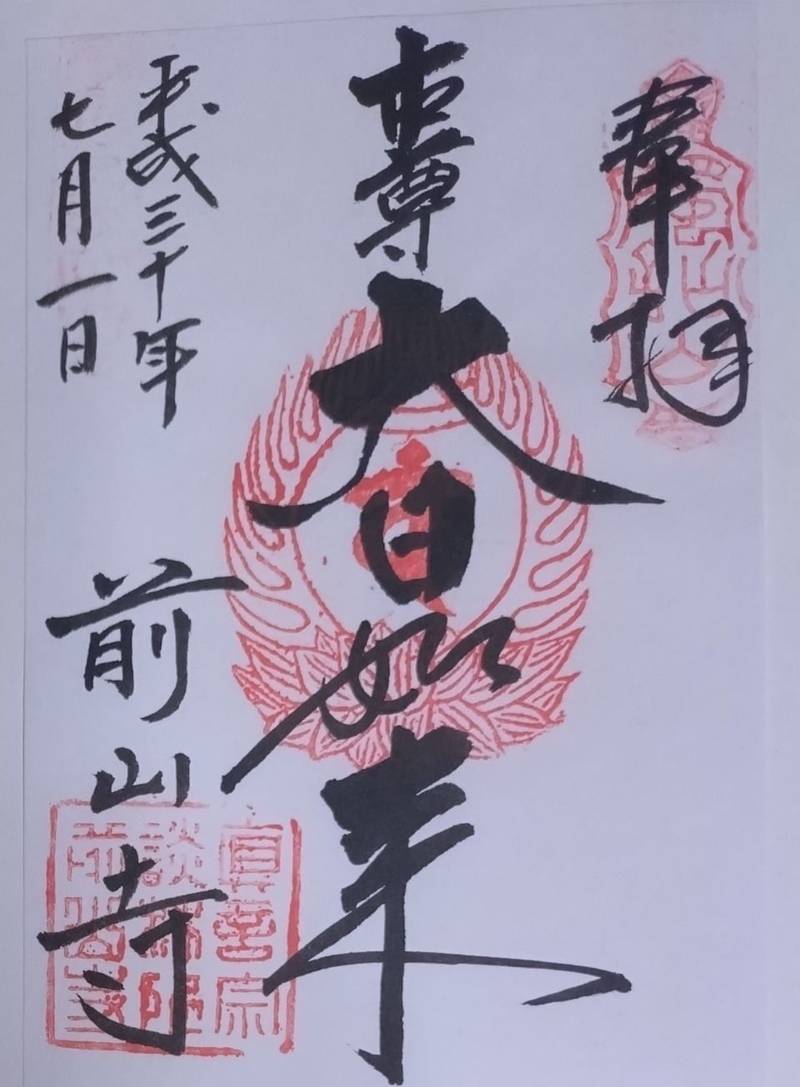 奉拝
本尊 大日如来
平成三十年
七月一日
前山寺
眞言宗
前山寺